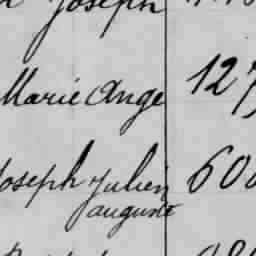 Joseph
Marie Ange 127
Joseph Julien 60
auguste